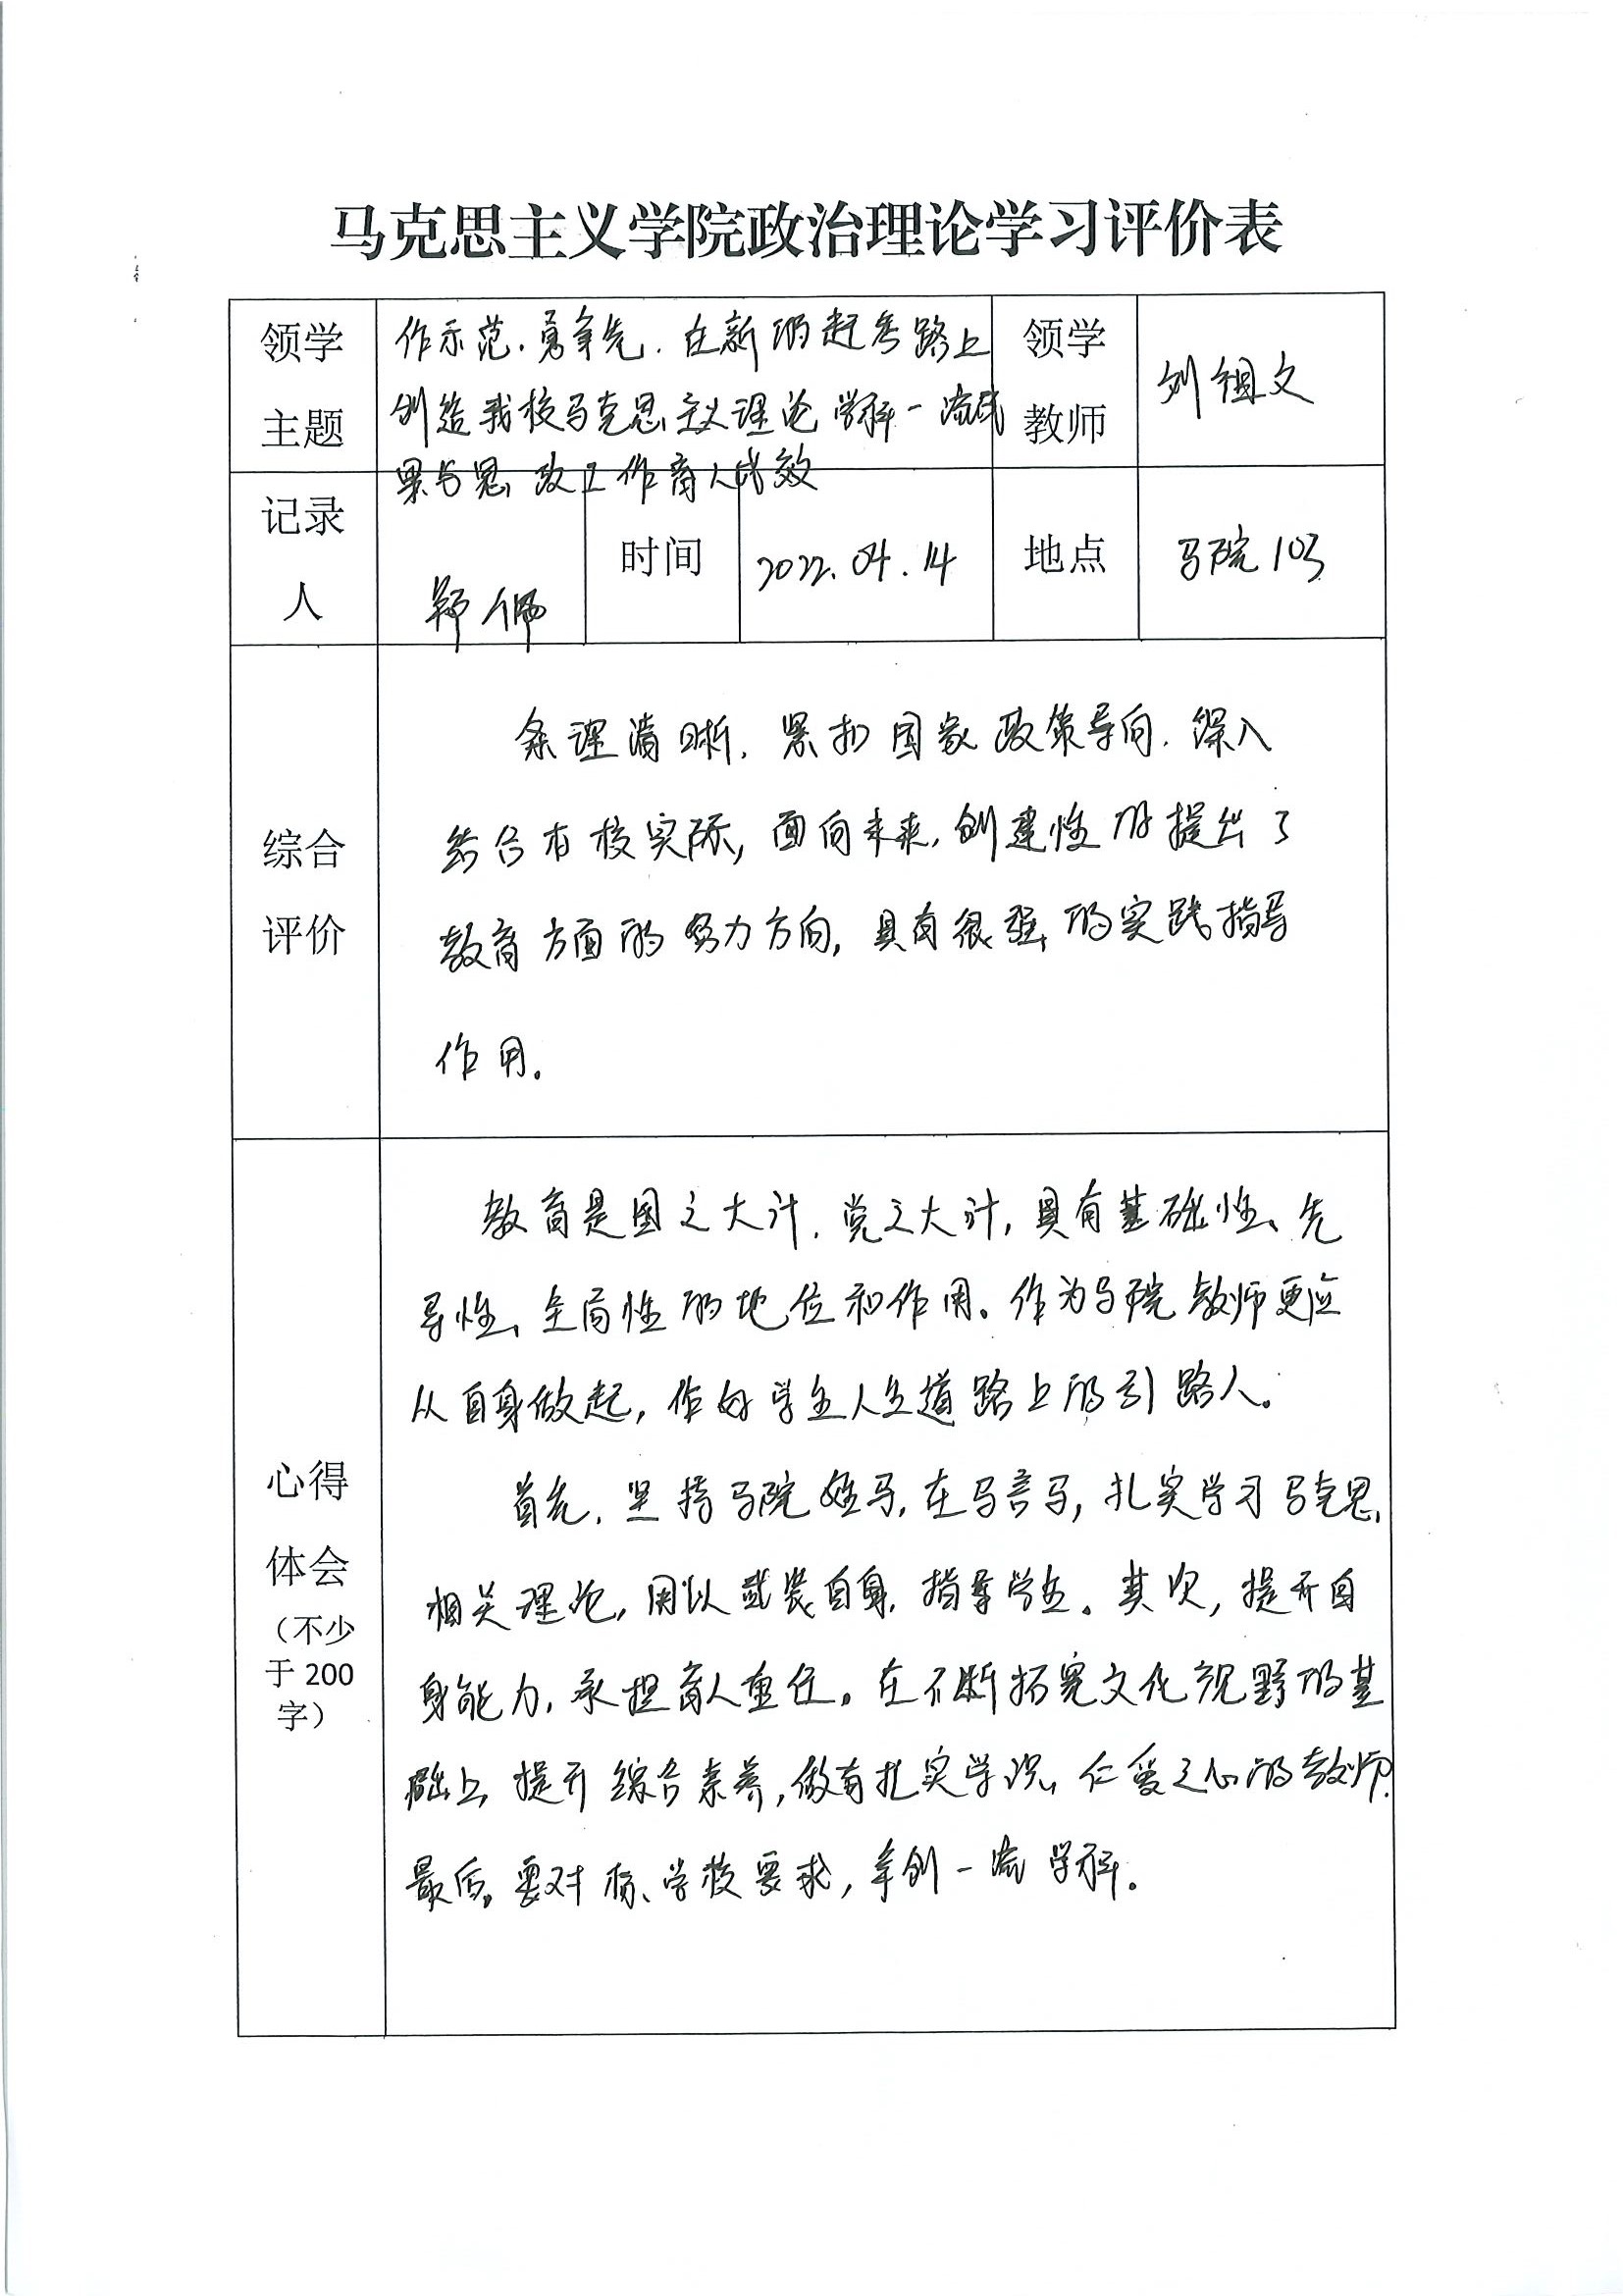 马克思主义学院政治理论学习评价表
领学主题
作示范、勇争先，在新的赶考路上
创造我校马克思主义理论学科一流成
果与思政工作育人成效
领学教师
刘组文
记录人
郭佩
时间
2022.04.14
地点
马院103
综合评价
条理清晰，紧扣国家政策导向，深入
结合本校实际，面向未来，创建性的提出了
教育方面的努力方向，具有很强的实践指导
作用。
心得体会
（不少于200字）
教育是国之大计，党之大计，具有基础性、先
导性、全局性的地位和作用。作为马院教师更应
从自身做起，作好学生人生道路上的引路人。
首先，坚持马院姓马，在马言马，扎实学习马克思
相关理论，用以武装自身，指导学生。其次，提升自
身能力，承担育人重任。在不断拓宽文化视野的基
础上，提升综合素养，做有扎实学识、仁爱之心的教师。
最后，要对标学校要求，争创一流学科。